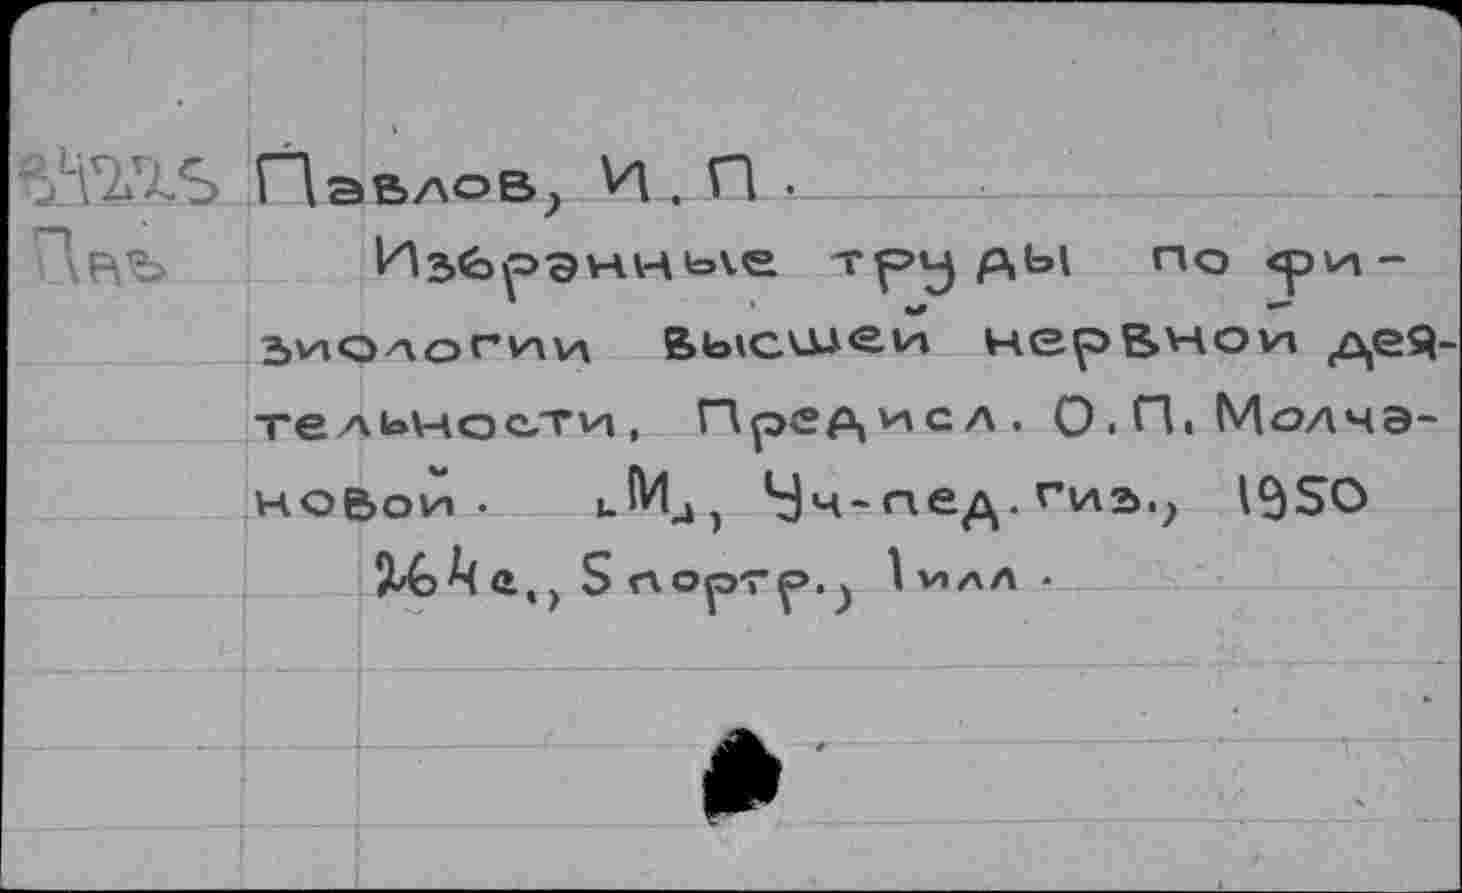 Павлов, И. П.
Пав
Избранные труды по фи-
зиологии высшей нервной дея-
тельности, Предисл. О. П. Молча-
новой. [М], Уч-пед. гиз., 1950
264 с., 5 портр., 1 илл.